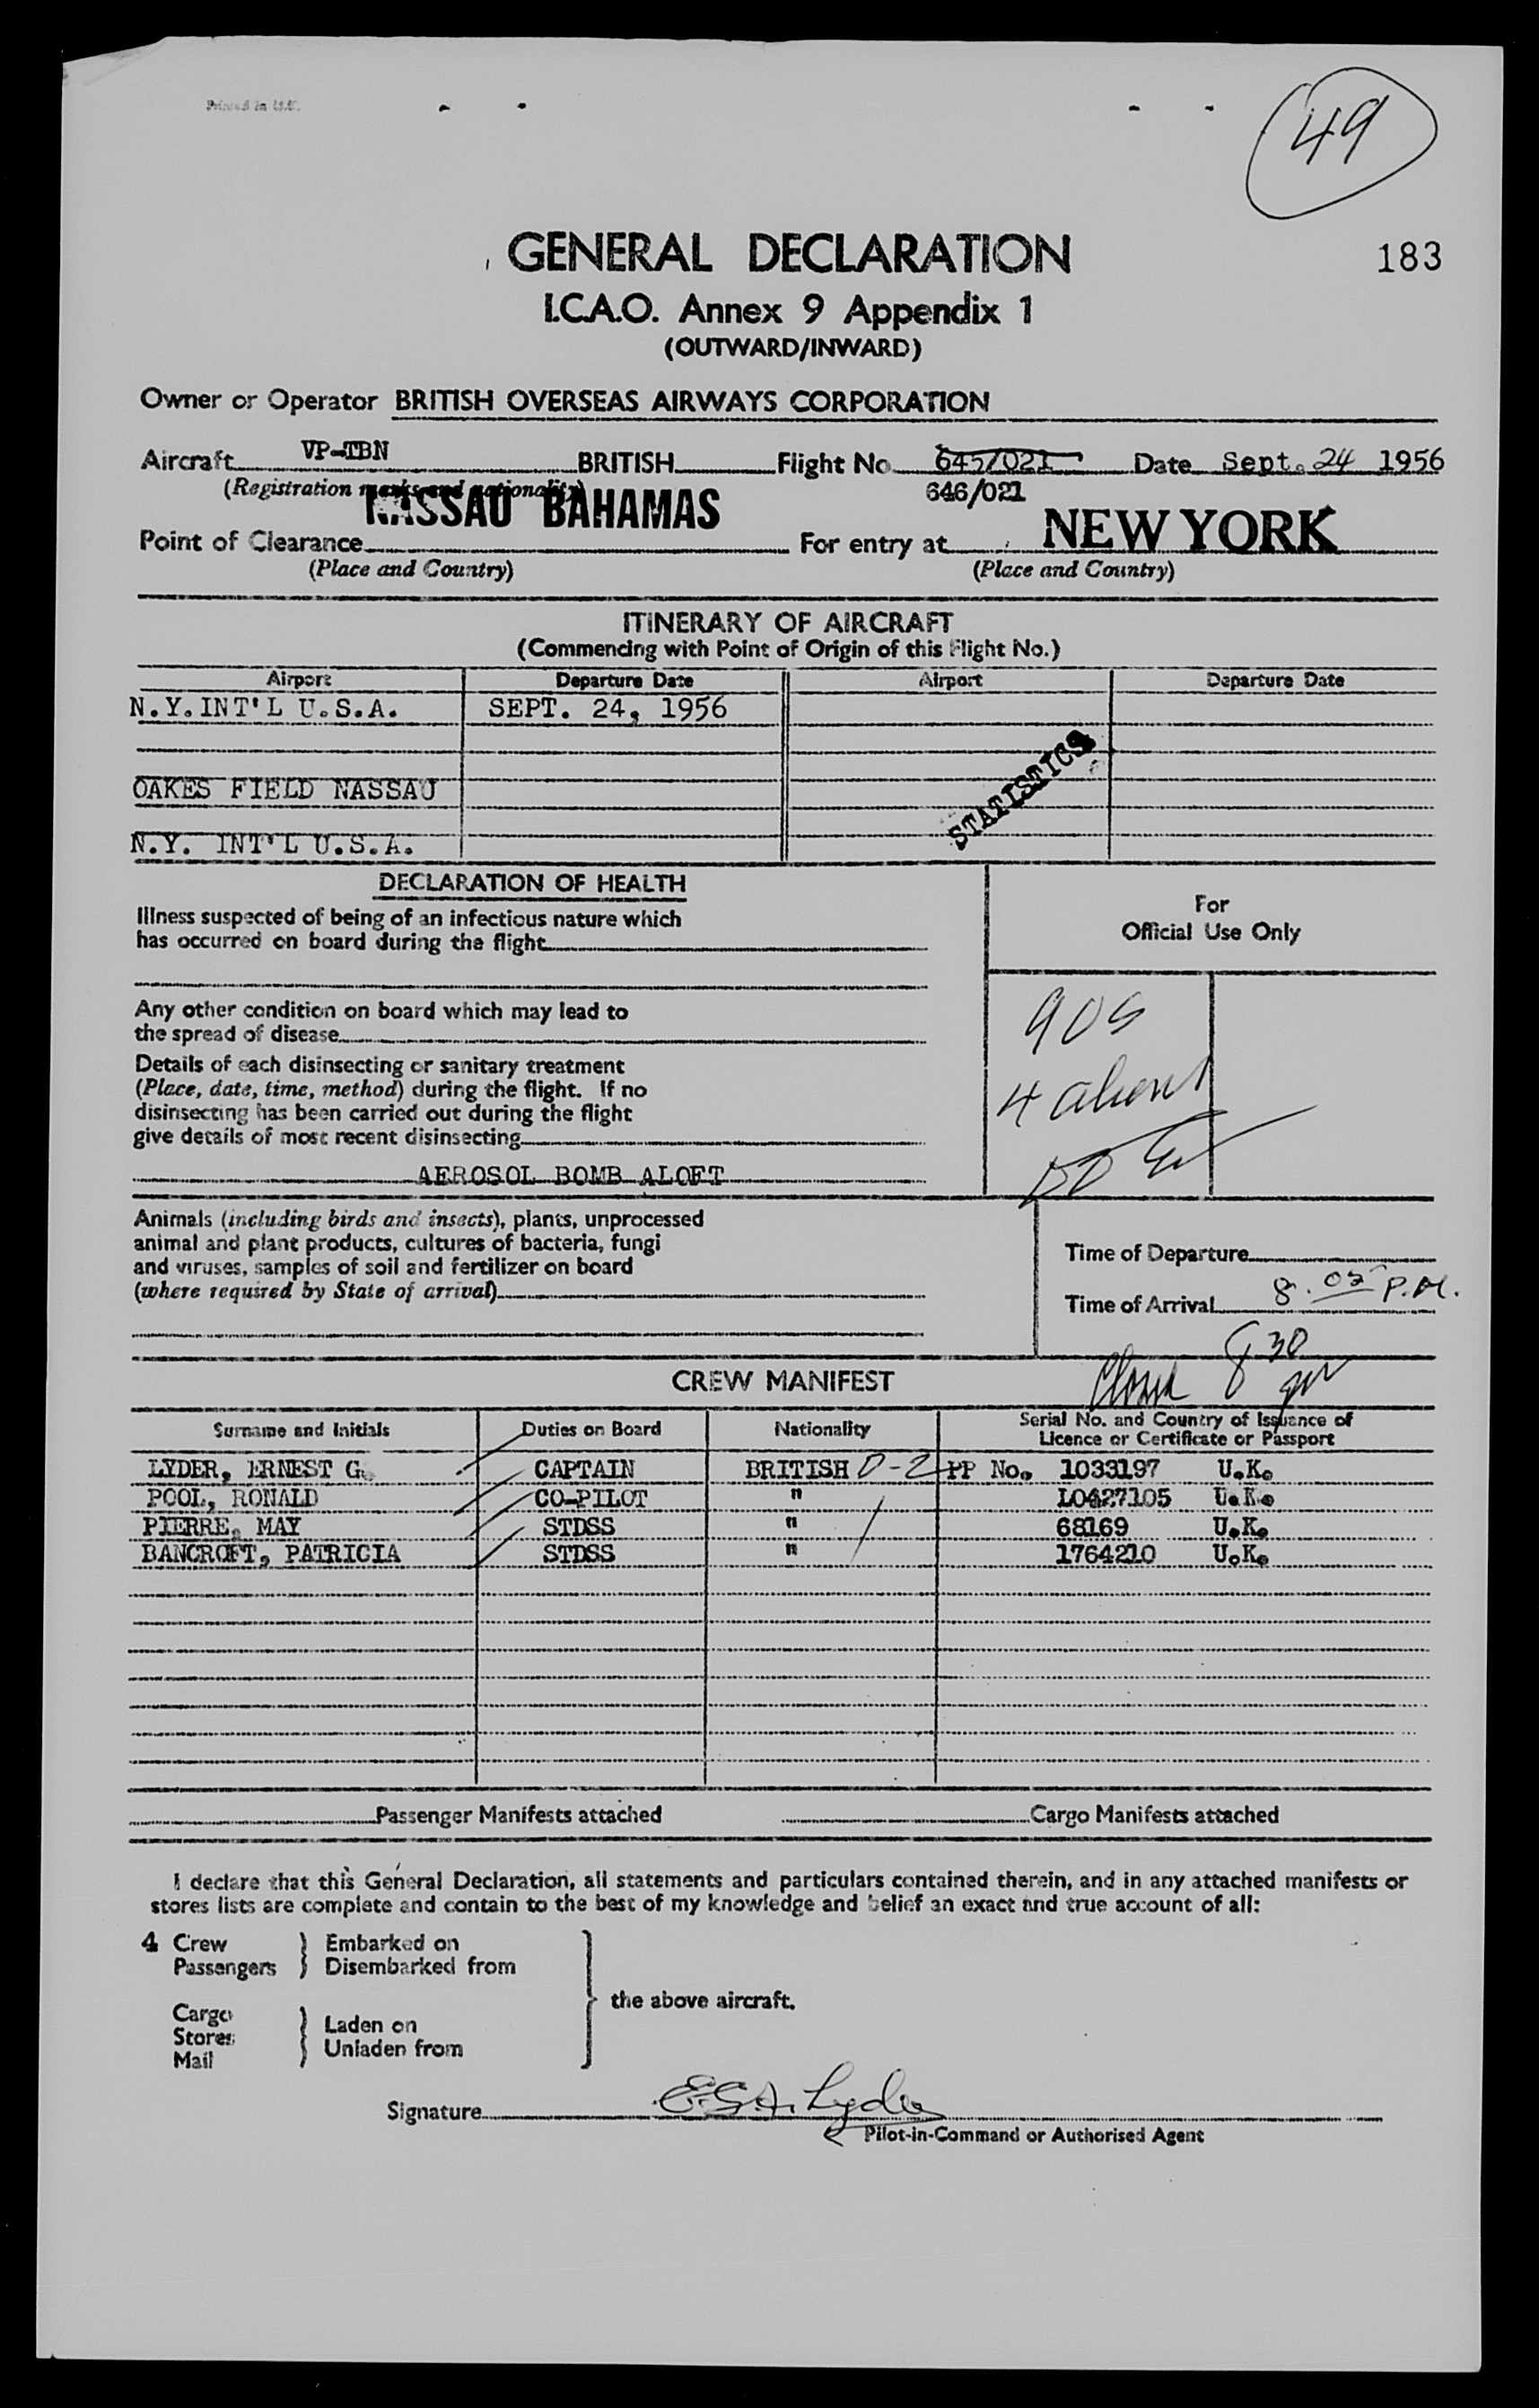 Printed in U.K.
49
GENERAL DECLARATION
183
I.C.A.O. Annex 9 Appendix 1
(OUTWARD/INWARD)
Owner or Operator BRITISH OVERSEAS AIRWAYS CORPORATION
Aircraft VP-TBN BRITISH Flight No 645/021 Date Sept. 24 1956
(Registration marks and nationality) 646/021
NASSAU BAHAMAS
Point of Clearance For entry at NEW YORK
(Place and Country) (Place and Country)
ITINERARY OF AIRCRAFT
(Commencing with Point of Origin of this Flight No.)
Airport Departure Date Airport Departure Date
N.Y. INT'L U.S.A. SEPT. 24, 1956
STATISTICS
OAKES FIELD NASSAU
N.Y. INT'L U.S.A.
DECLARATION OF HEALTH
For
Official Use Only
Illness suspected of being of an infectious nature which
has occurred on board during the flight
Any other condition on board which may lead to
the spread of disease
Details of each disinsecting or sanitary treatment
(Place, date, time, method) during the flight. If no
disinsecting has been carried out during the flight
give details of most recent disinsecting
AEROSOL BOMB ALOFT
4
Animals (including birds and insects), plants, unprocessed
animal and plant products, cultures of bacteria, fungi
and viruses, samples of soil and fertilizer on board
(where required by State of arrival)
Time of Departure
Time of Arrival 8.05 P.M.
8 30
CREW MANIFEST
Surname and Initials Duties on Board Nationality Serial No. and Country of Issuance of
Licence or Certificate or Passport
LYDER, ERNEST G. CAPTAIN BRITISH D-2 PP No. 1033197 U.K.
POOL, RONALD CO-PILOT " L0427105 U.K.
PIERRE, MAY STDSS " 68169 U.K.
BANCROFT, PATRICIA STDSS " 1764210 U.K.
Passenger Manifests attached Cargo Manifests attached
I declare that this General Declaration, all statements and particulars contained therein, and in any attached manifests or
stores lists are complete and contain to the best of my knowledge and belief an exact and true account of all:
4 Crew Embarked on
Passengers Disembarked from
the above aircraft.
Cargo
Stores Laden on
Mail Unladen from
Signature E.G.A. Lyder
Pilot-in-Command or Authorised Agent